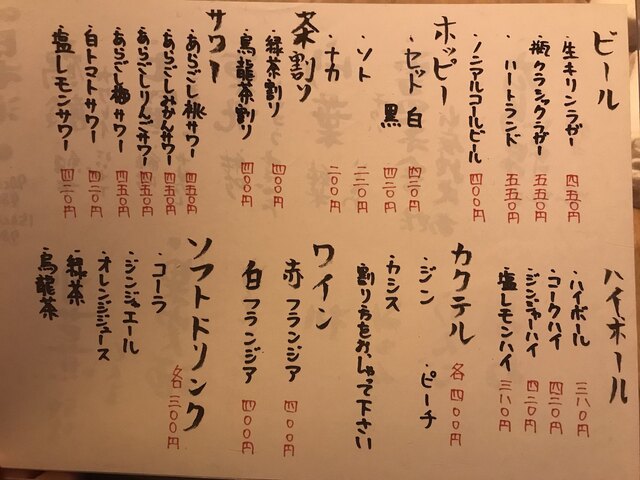 ビール
・生キリンラガー 四五〇円
・瓶クラシックラガー 五五〇円
・ハートランド 五五〇円
・ノンアルコールビール 四〇〇円
ホッピー
・セット 白 四二〇円
黒 四二〇円
・ソト 二二〇円
・ナカ 二〇〇円
茶割り
・緑茶割り 四〇〇円
・烏龍茶割り 四〇〇円
サワー
・あらごし桃サワー 四五〇円
・あらごしみかんサワー 四五〇円
・あらごしりんごサワー 四五〇円
・あらごし梅サワー 四五〇円
・白トマトサワー 四二〇円
・塩レモンサワー 四二〇円
ハイボール
・ハイボール 三八〇円
・コークハイ 四二〇円
・ジンジャーハイ 四二〇円
・塩レモンハイ 三八〇円
カクテル 各四〇〇円
・ジン ・ピーチ
・カシス
割り方をおっしゃって下さい
ワイン
赤 フランジア 四〇〇円
白 フランジア 四〇〇円
ソフトドリンク 各三〇〇円
・コーラ
・ジンジャエール
・オレンジジュース
・緑茶
・烏龍茶